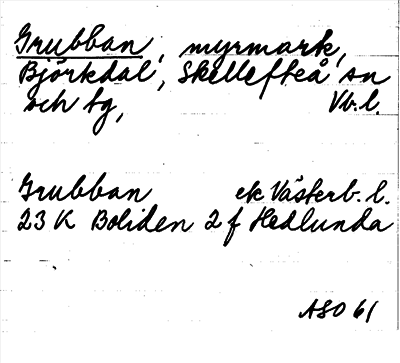 Grubban, myrmark,
Björkdal, Skellefteå sn
och tg, Vb.l.
Grubban ek Västerb. l.
23 K Boliden 2 f Hedlunda
ASO 61